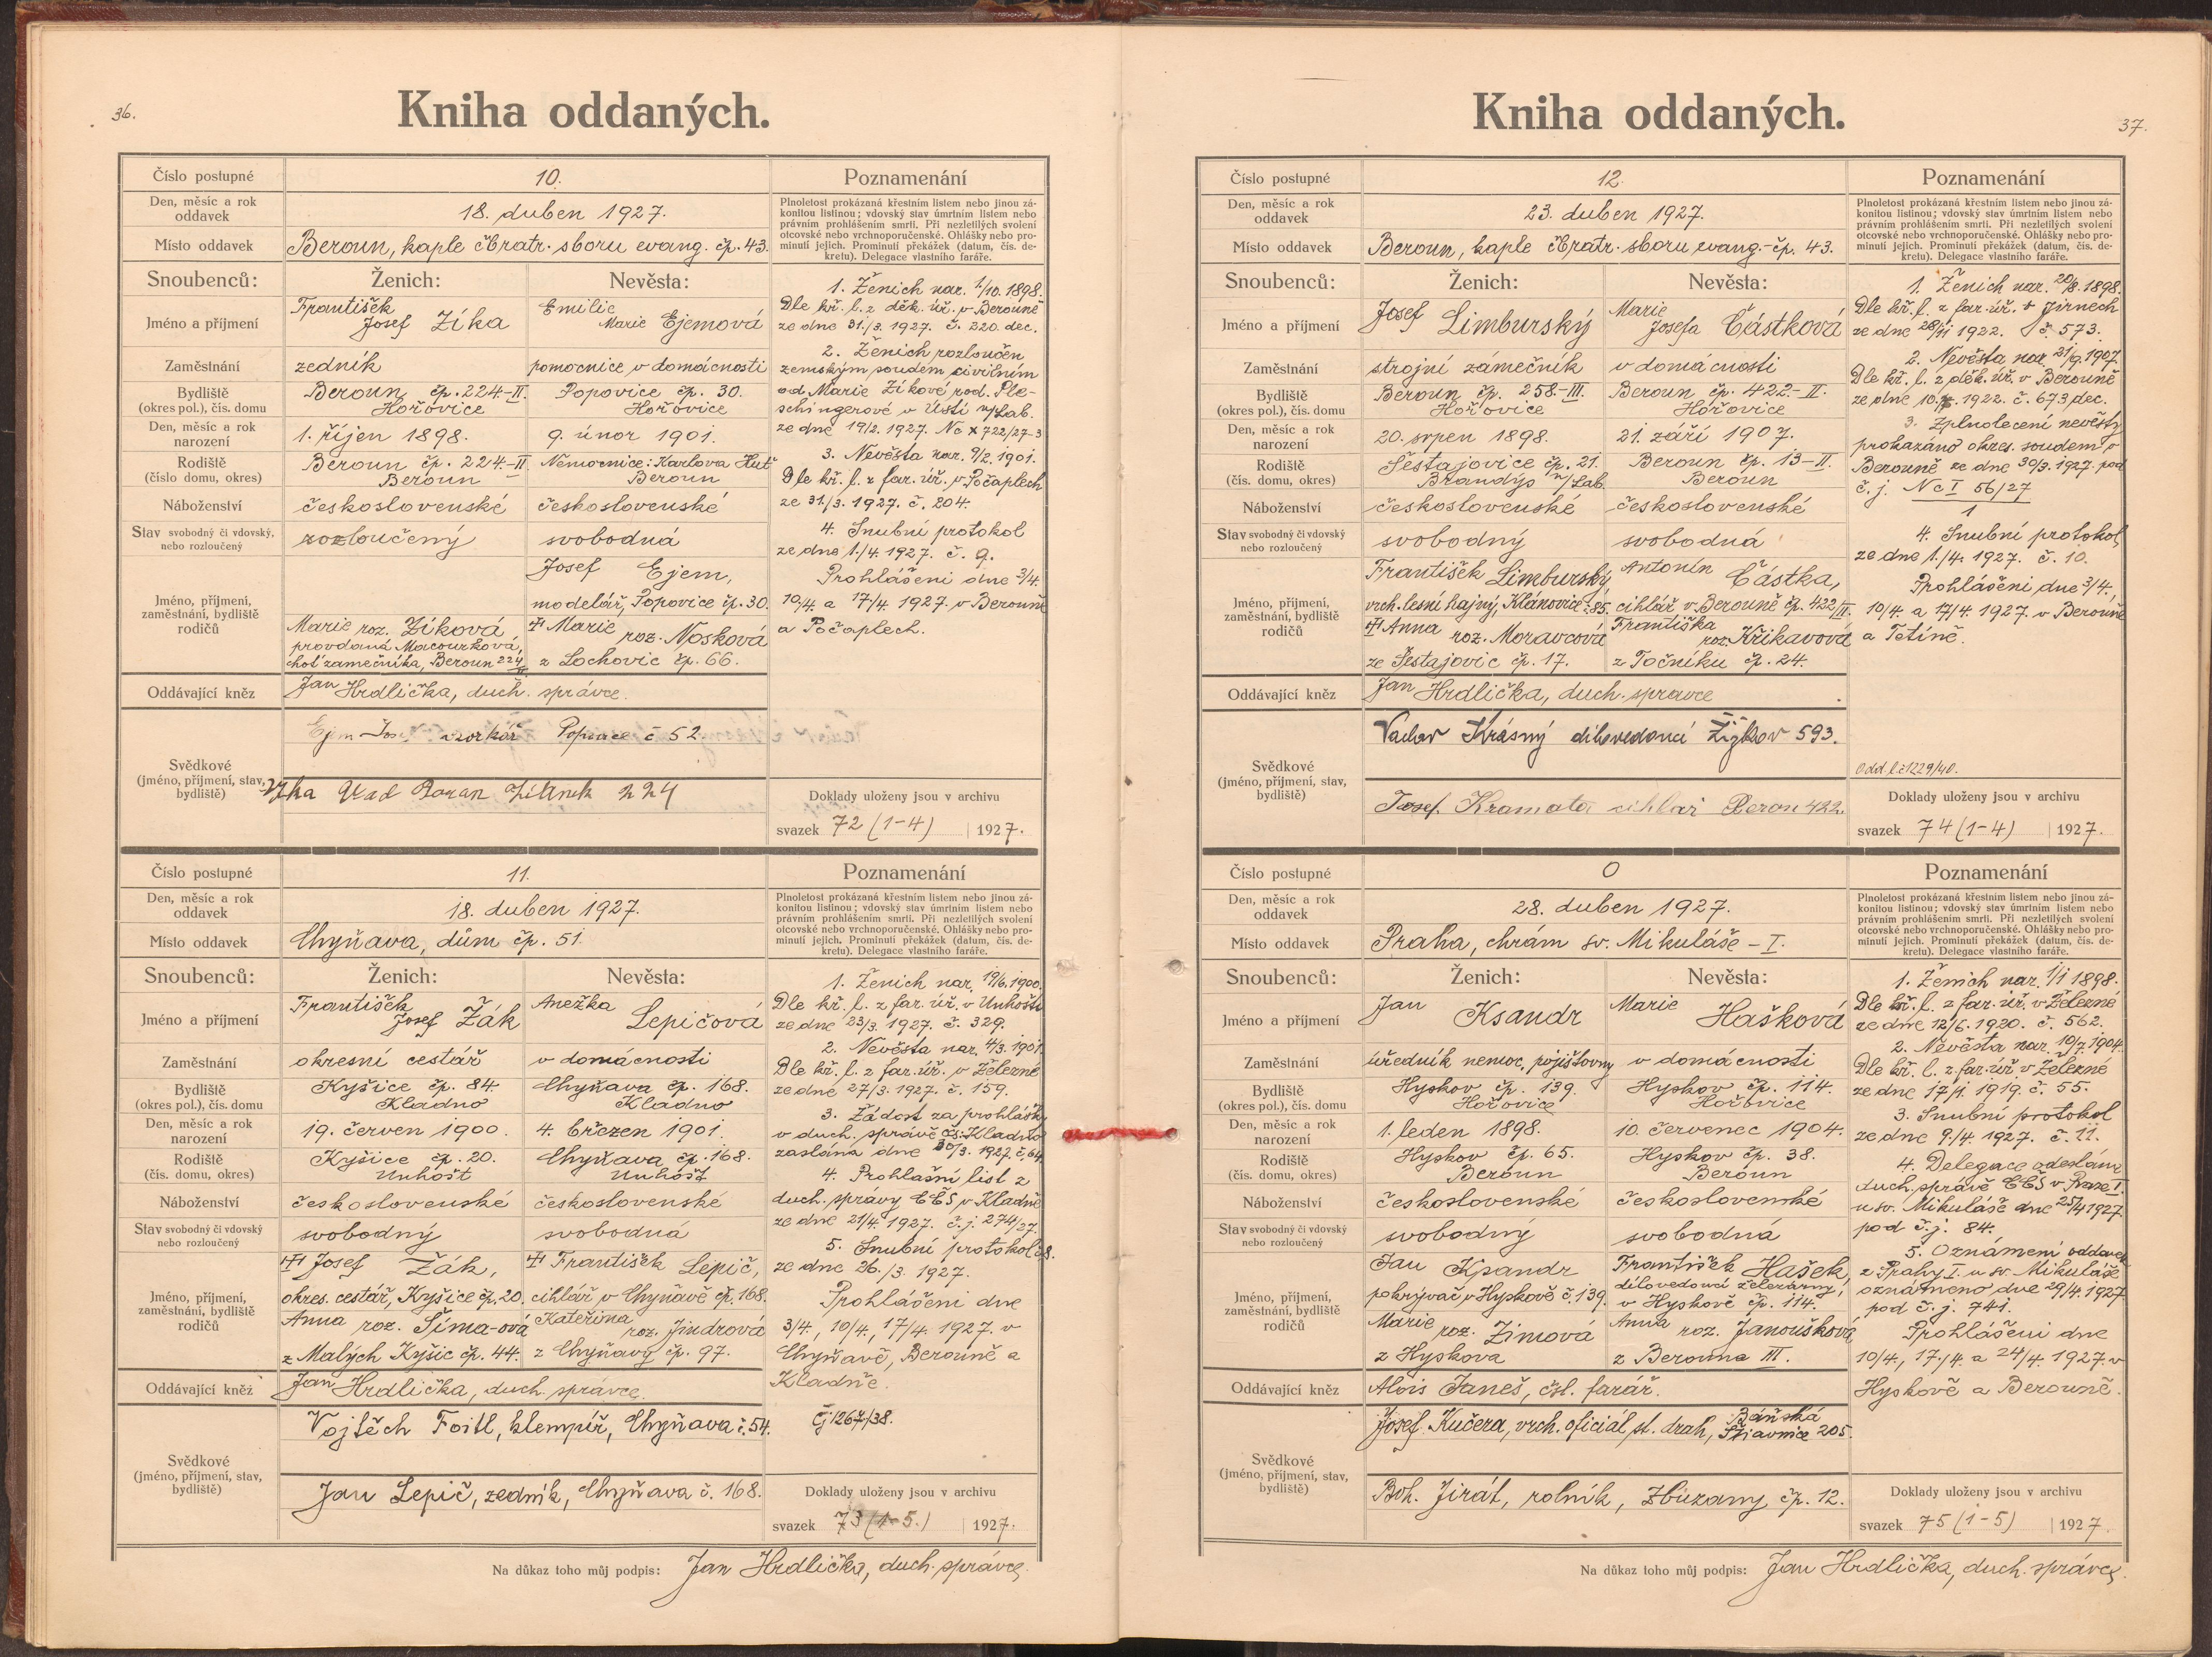 36.
Kniha oddaných.
Číslo postupné
10.
Poznamenání
Den, měsíc a rok
oddavek
18. duben 1927.
Plnoletost prokázaná křestním listem nebo jinou zá-
konitou listinou; vdovský stav úmrtním listem nebo
právním prohlášením smrti. Při nezletilých svolení
otcovské nebo vrchnoporučenské. Ohlášky nebo pro-
minutí jejich. Prominutí překážek (datum, čís. de-
kretu). Delegace vlastního faráře.
Místo oddavek
Beroun, kaple čbratr. sboru evang. čp. 43.
Snoubenců:
Ženich:
Nevěsta:
Jméno a příjmení
František
Josef Zíka
Emilie
Marie Ejemová
Zaměstnání
zedník
pomocnice v domácnosti
Bydliště
(okres pol.), čís. domu
Beroun čp. 224-II.
Hořovice
Popovice čp. 30.
Hořovice
Den, měsíc a rok
narození
1. říjen 1898.
9. únor 1901.
Rodiště
(číslo domu, okres)
Beroun čp. 224-II
Beroun
Nemocnice: Karlova Huť
Beroun
Náboženství
československé
československé
Stav svobodný či vdovský,
nebo rozloučený
rozloučený
svobodná
Jméno, příjmení,
zaměstnání, bydliště
rodičů
Marie roz. Zíková
provdaná Macourková,
choť zámečníka, Beroun 224/II
Josef Ejem,
modelář, Popovice čp. 30.
Marie
roz. Nosková
z Lochovic čp. 66.
Oddávající kněz
Jan Hrdlička, duch. správce.
Svědkové
(jméno, příjmení, stav,
bydliště)
Ejem Josef vzorkář Popovice č 52.
1. Ženich nar. 1/10. 1898.
Dle kř. l. z děk. úř. v Berouně
ze dne 31./3. 1927. č. 220. dec.
2. Ženich rozloučen
zemským soudem civilním
od Marie Zíkové rod. Ple-
schingerové v Ústí n/Lab.
ze dne 19/2. 1927. Nc X 722/27-3
3. Nevěsta nar. 9/2. 1901.
Dle kř. l. z far. úř. v Počaplech
ze 31./3. 1927. č. 204.
4. Snubní protokol
ze dne 1./4. 1927. č. 9.
Prohlášeni dne 3/4.
10/4. a 17/4. 1927. v Berouně
a Počaplech.
Doklady uloženy jsou v archivu
svazek 72 (1-4) 1927.
Číslo postupné
11.
Poznamenání
Den, měsíc a rok
oddavek
18. duben 1927.
Plnoletost prokázaná křestním listem nebo jinou zá-
konitou listinou; vdovský stav úmrtním listem nebo
právním prohlášením smrti. Při nezletilých svolení
otcovské nebo vrchnoporučenské. Ohlášky nebo pro-
minutí jejich. Prominutí překážek (datum, čís. de-
kretu). Delegace vlastního faráře.
Místo oddavek
Chyňava, dům čp. 51.
Snoubenců:
Ženich:
Nevěsta:
Jméno a příjmení
František
Josef Žák
Anežka
Lepičová
Zaměstnání
okresní cestář
v domácnosti
Bydliště
(okres pol.), čís. domu
Kyšice čp. 84.
Kladno
Chyňava čp. 168.
Kladno
Den, měsíc a rok
narození
19. červen 1900.
4. březen 1901.
Rodiště
(čís. domu, okres)
Kyšice čp. 20.
Unhošť
Chyňava čp. 168.
Unhošť
Náboženství
československé
československé
Stav svobodný či vdovský
nebo rozloučený
svobodný
svobodná
Jméno, příjmení,
zaměstnání, bydliště
rodičů
Josef Žák,
okres. cestář, Kyšice čp. 20.
Anna roz. Šíma-ová
z Malých Kyšic čp. 44.
František Lepič,
cihlář v Chyňavě čp. 168.
Kateřina
roz. Jindrová
z Chyňavy čp. 97.
Oddávající kněz
Jan Hrdlička, duch. správce.
Svědkové
(jméno, příjmení, stav,
bydliště)
Vojtěch Foitl, klempíř, Chyňava č. 54.
Jan Lepič, zedník, Chyňava č. 168.
1. Ženich nar. 19/6. 1900.
Dle kř. l. z far. úř. v Unhošti
ze dne 23/3. 1927. č. 329.
2. Nevěsta nar. 4/3. 1901.
Dle kř. l. z far. úř. v Železné
ze dne 27/3. 1927. č. 159.
3. Žádost za prohlášky
v duch. správě čs. Kladno
zaslána dne 30/3. 1927. č. 64.
4. Prohlašní list z
duch. správy CČS v Kladně
ze dne 21/4. 1927. č. j. 274/27.
5. Snubní protokol č. 8.
ze dne 26./3. 1927.
Prohlášeni dne
3/4., 10/4., 17/4. 1927. v
Chyňavě, Berouně a
Kladně.
Čj 1267/38.
Doklady uloženy jsou v archivu
svazek 73 (1-5.) 1927.
Na důkaz toho můj podpis: Jan Hrdlička, duch. správce.
37.
Kniha oddaných.
Číslo postupné
12.
Poznamenání
Den, měsíc a rok
oddavek
23. duben 1927.
Plnoletost prokázaná křestním listem nebo jinou zá-
konitou listinou; vdovský stav úmrtním listem nebo
právním prohlášením smrti. Při nezletilých svolení
otcovské nebo vrchnoporučenské. Ohlášky nebo pro-
minutí jejich. Prominutí překážek (datum, čís. de-
kretu). Delegace vlastního faráře.
Místo oddavek
Beroun, kaple čbratr. sboru evang. čp. 43.
Snoubenců:
Ženich:
Nevěsta:
Jméno a příjmení
Josef Limburský
Marie
Josefa Částková
Zaměstnání
strojní zámečník
v domácnosti
Bydliště
(okres pol.), čís. domu
Beroun čp. 258-III.
Hořovice
Beroun čp. 422-II.
Hořovice
Den, měsíc a rok
narození
20. srpen 1898.
21. září 1907.
Rodiště
(čís. domu, okres)
Šestajovice čp. 21.
Brandýs n/Lab.
Beroun čp. 13-II.
Beroun
Náboženství
československé
československé
Stav svobodný či vdovský
nebo rozloučený
svobodný
svobodná
Jméno, příjmení,
zaměstnání, bydliště
rodičů
František Limburský
vrch. lesní hajný, Klánovice č. 85.
Anna roz. Moravcová
ze Šestajovic čp. 17.
Antonín Částka,
cihlář v Berouně čp. 422/II.
Františka
roz. Křikavová
z Točníku čp. 24.
Oddávající kněz
Jan Hrdlička, duch. správce
Svědkové
(jméno, příjmení, stav,
bydliště)
Václav Krásný dílovedoucí Žižkov 593.
Josef Kramata cihlář Beroun 422.
1. Ženich nar. 20/8. 1898.
Dle kř. l. z far. úř. v Jirnech
ze dne 28/11 1922. č. 573.
2. Nevěsta nar. 21/9. 1907.
Dle kř. l. z děk. úř. v Berouně
ze dne 1922. č. 673 dec.
3. Zplnoletení nevěsty
prokazáno okres. soudem v
Berouně ze dne 30/3. 1927. pod
č. j. Nc I 56/27
1
4. Snubní protokol
ze dne 1./4. 1927. č. 10.
Prohlášeni dne 3/4.,
10/4. a 17/4. 1927. v Berouně
a Tetíně.
Odd. l. č. 1229/40.
Doklady uloženy jsou v archivu
svazek 74 (1-4) 1927.
Číslo postupné
0
Poznamenání
Den, měsíc a rok
oddavek
28. duben 1927.
Plnoletost prokázaná křestním listem nebo jinou zá-
konitou listinou; vdovský stav úmrtním listem nebo
právním prohlášením smrti. Při nezletilých svolení
otcovské nebo vrchnoporučenské. Ohlášky nebo pro-
minutí jejich. Prominutí překážek (datum, čís. de-
kretu). Delegace vlastního faráře.
Místo oddavek
Praha, chrám sv. Mikuláše - I.
Snoubenců:
Ženich:
Nevěsta:
Jméno a příjmení
Jan Ksandr
Marie Hašková
Zaměstnání
úředník nemoc. pojišťovny
v domácnosti
Bydliště
(okres pol.), čís. domu
Hyskov čp. 139.
Hořovice
Hyskov čp. 114.
Hořovice
Den, měsíc a rok
narození
1. leden 1898.
10. červenec 1904.
Rodiště
(čís. domu, okres)
Hyskov čp. 65.
Beroun
Hyskov čp. 38.
Beroun
Náboženství
československé
československé
Stav svobodný či vdovský
nebo rozloučený
svobodný
svobodná
Jméno, příjmení,
zaměstnání, bydliště
rodičů
Jan Ksandr
pokrývač v Hyskově č. 139.
Marie
roz. Zímová
z Hyskova
František Hašek,
dílovedoucí železárny,
v Hyskově čp. 114.
Anna roz. Janoušková
z Berouna III.
Oddávající kněz
Alois Janeš, čsl. farář.
Svědkové
(jméno, příjmení, stav,
bydliště)
Josef Kučera, vrch. oficiál st. drah, Báňská Štiavnica 205.
Boh. Jirát, rolník, Zbuzany čp. 12.
1. Ženich nar. 1/1 1898.
Dle kř. l. z far. úř. v Železné
ze dne 12/6. 1920. č. 562.
2. Nevěsta nar. 10/7 1904.
Dle kř. l. z far. úř. v Železné
ze dne 17/1. 1919. č. 55.
3. Snubní protokol
ze dne 9./4. 1927. č. 11.
4. Delegace odeslána
duch. správě CČS v Praze I.
u sv. Mikuláše dne 25/4 1927.
pod č. j. 84.
5. Oznámení oddavek
z Prahy I. u sv. Mikuláše
oznámeno dne 29/4. 1927
pod č. j. 741.
Prohlášeni dne
10/4., 17./4. a 24/4. 1927. v
Hyskově a Berouně.
Doklady uloženy jsou v archivu
svazek 75 (1-5) 1927.
Na důkaz toho můj podpis: Jan Hrdlička, duch. správce.